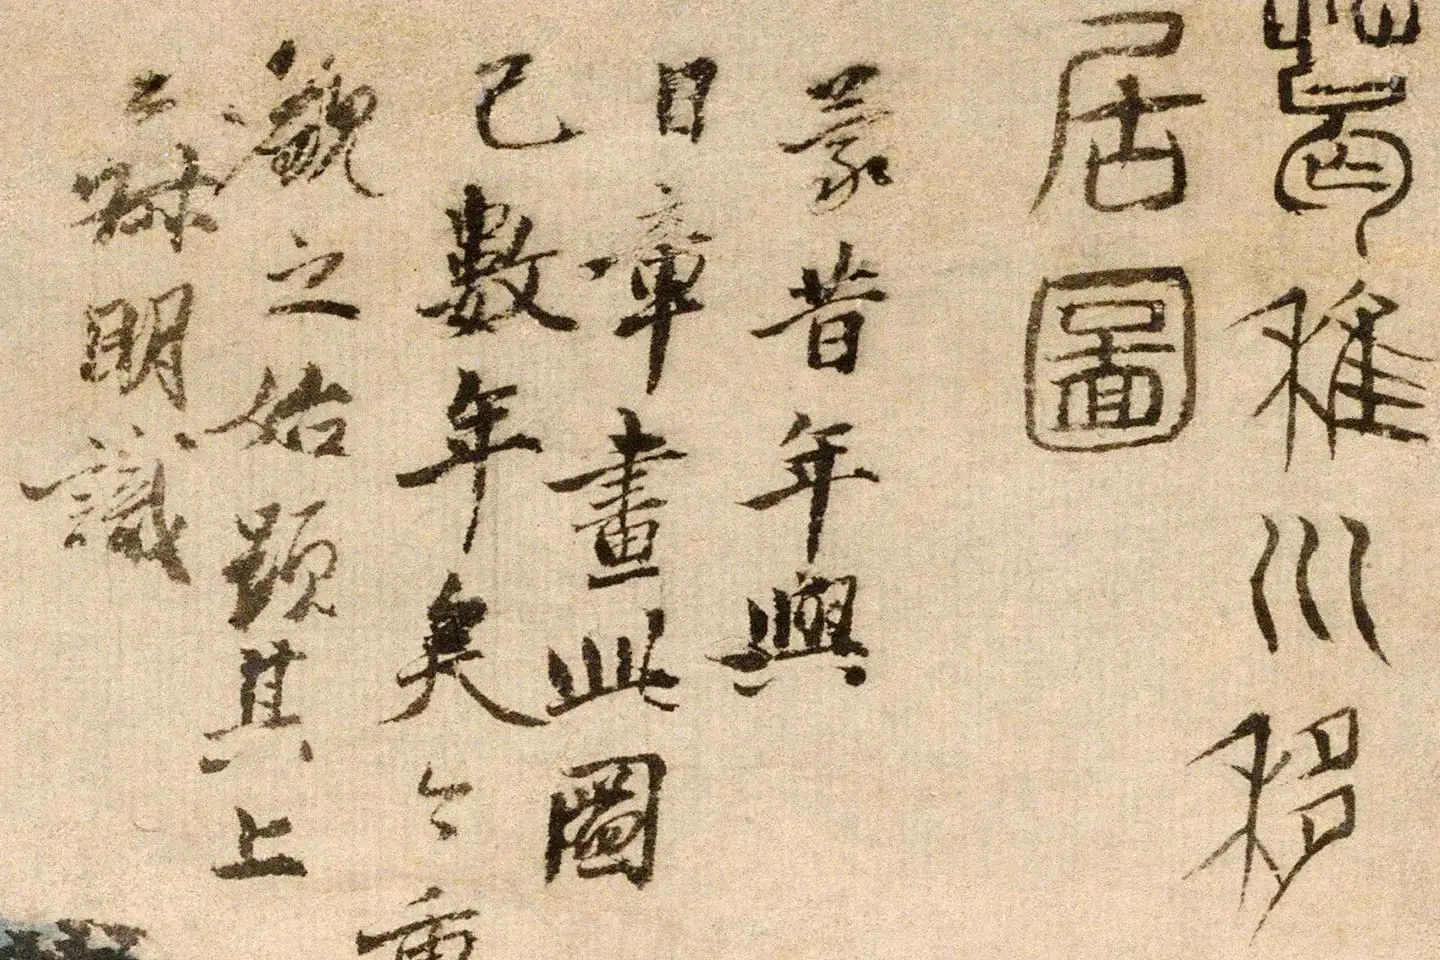 葛稚川移
居圖
蒙昔年與
日章畫此圖
已數年矣今重
觀之始題其上
王叔明識